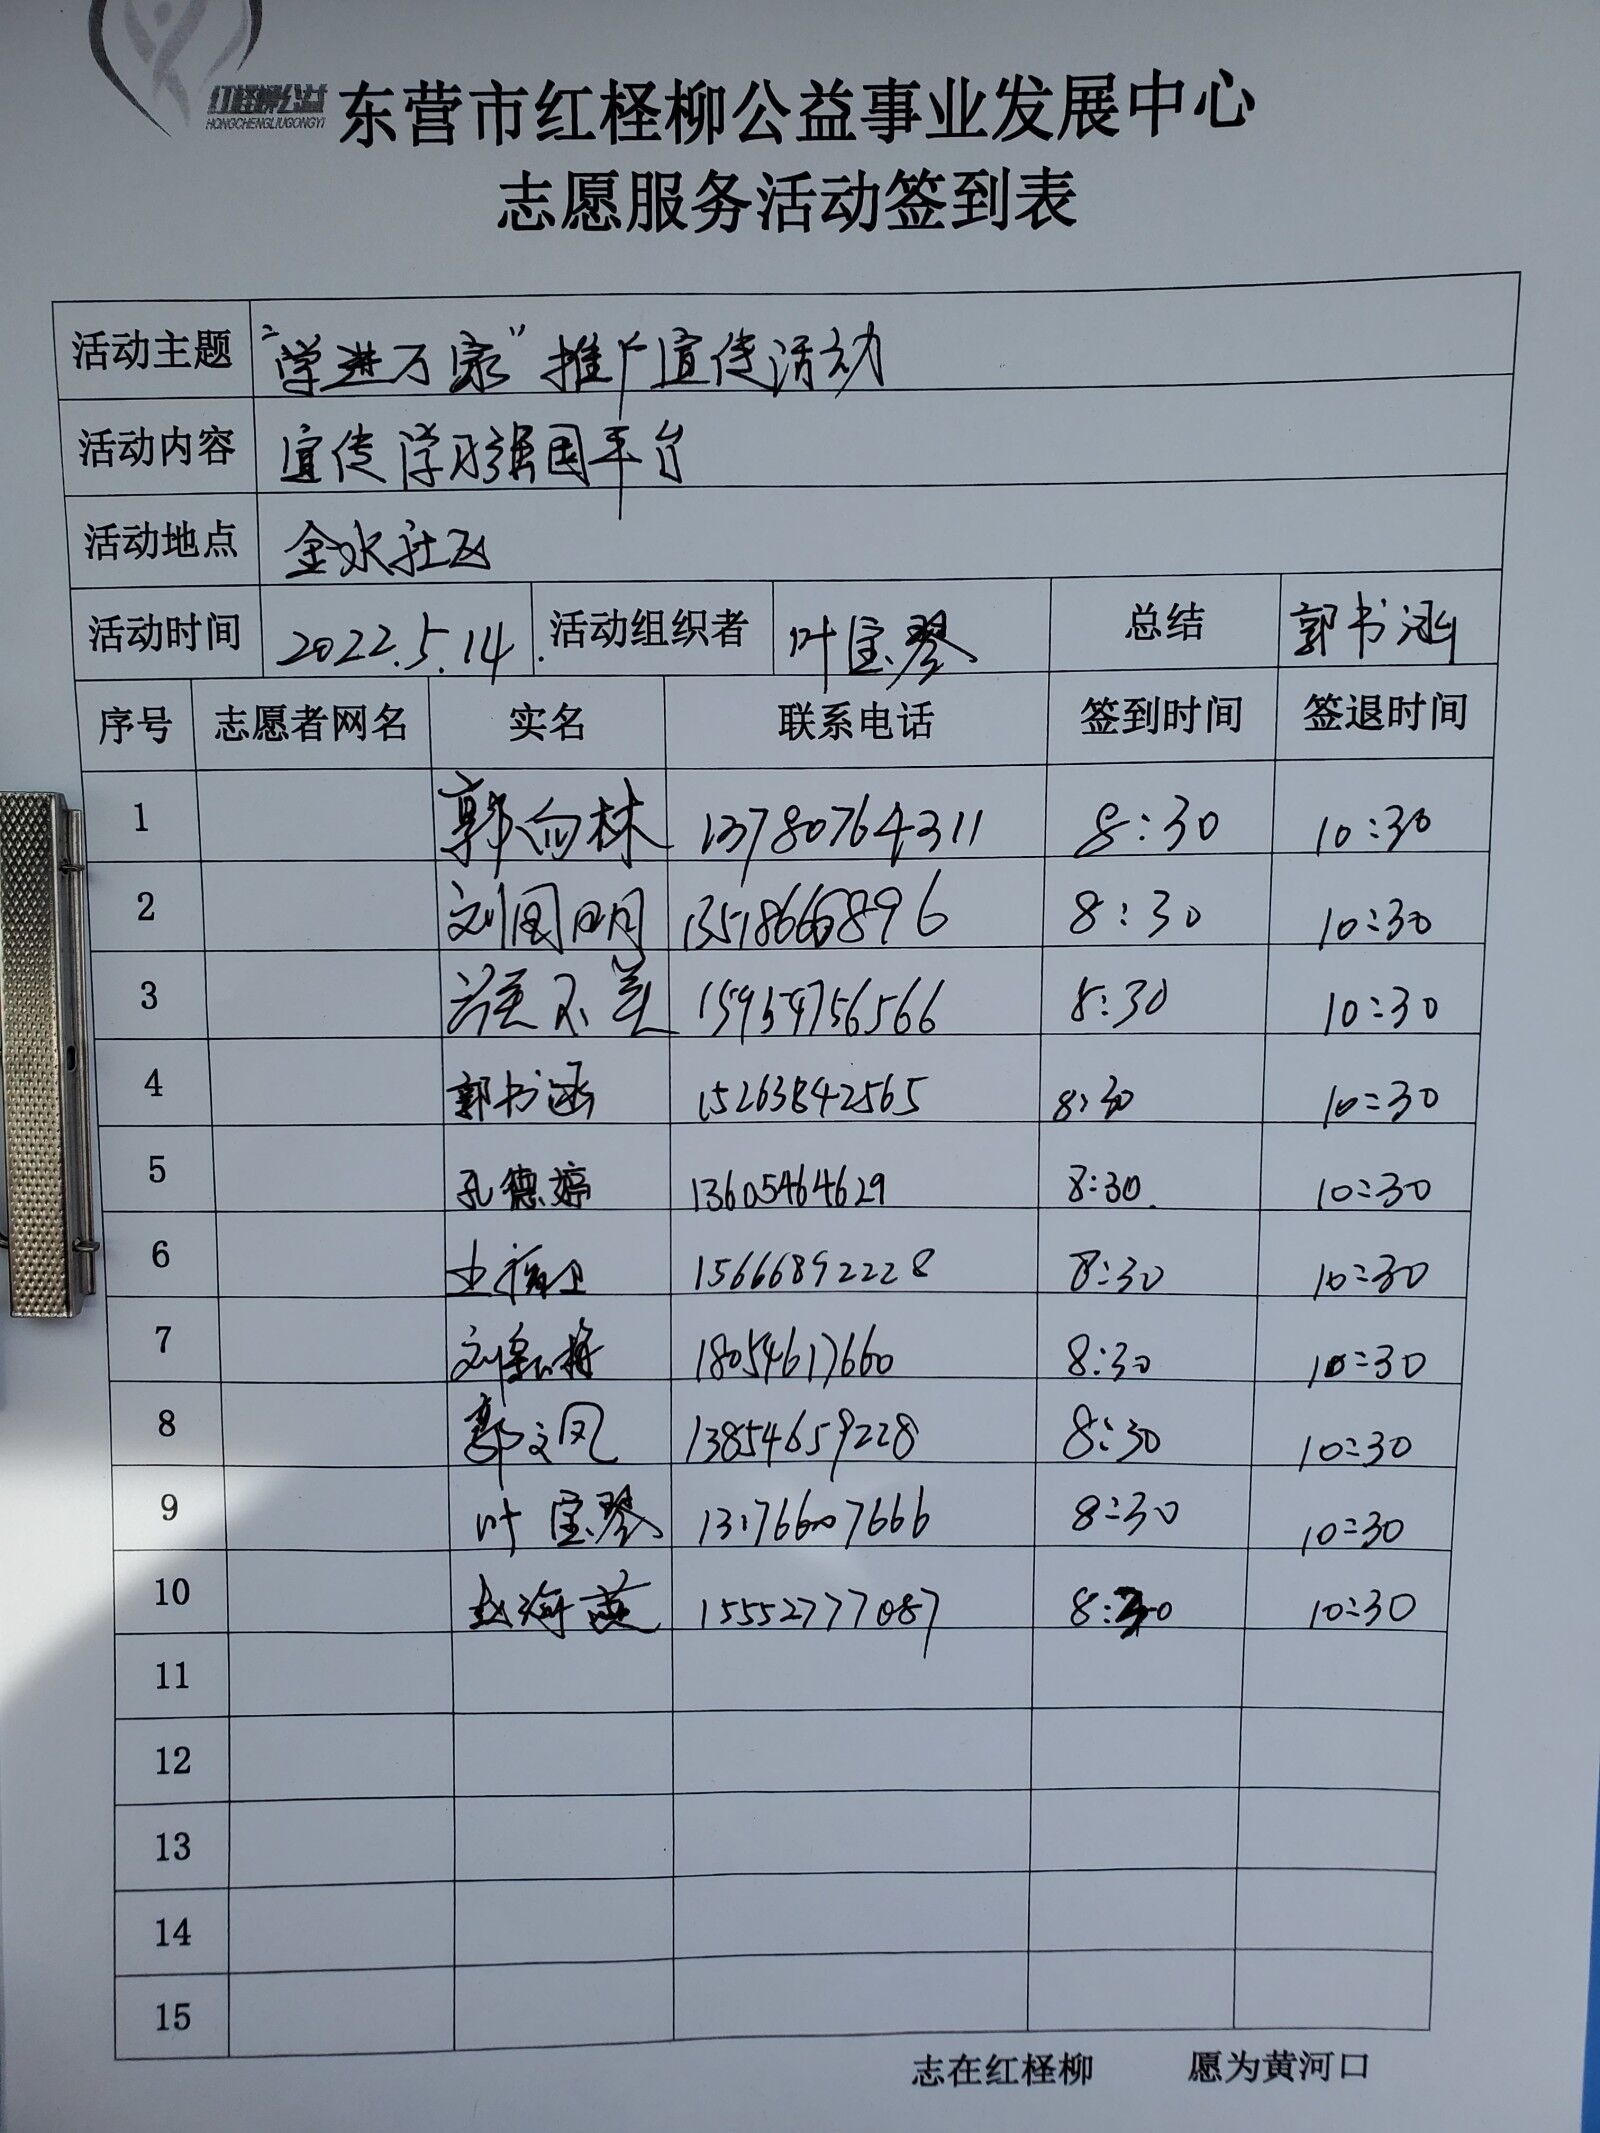 红柽柳公益
HONGCHENGLIUGONGYI
东营市红柽柳公益事业发展中心
志愿服务活动签到表
活动主题 “学进万家”推广宣传活动
活动内容 宣传学习强国平台
活动地点 金水社区
活动时间 2022.5.14. 活动组织者 叶宝琴 总结 郭书涵
序号 志愿者网名 实名 联系电话 签到时间 签退时间
1 郭向林 13780764311 8:30 10:30
2 刘国明 13518666896 8:30 10:30
3 15954756566 8:30 10:30
4 郭书涵 15263842565 8:30 10:30
5 孔德婷 13605464629 8:30 10:30
6 15666892228 8:30 10:30
7 18054617660 8:30 10:30
8 郭文凤 13854659228 8:30 10:30
9 叶宝琴 13176607666 8:30 10:30
10 赵海燕 15552777087 8:30 10:30
11
12
13
14
15
志在红柽柳 愿为黄河口